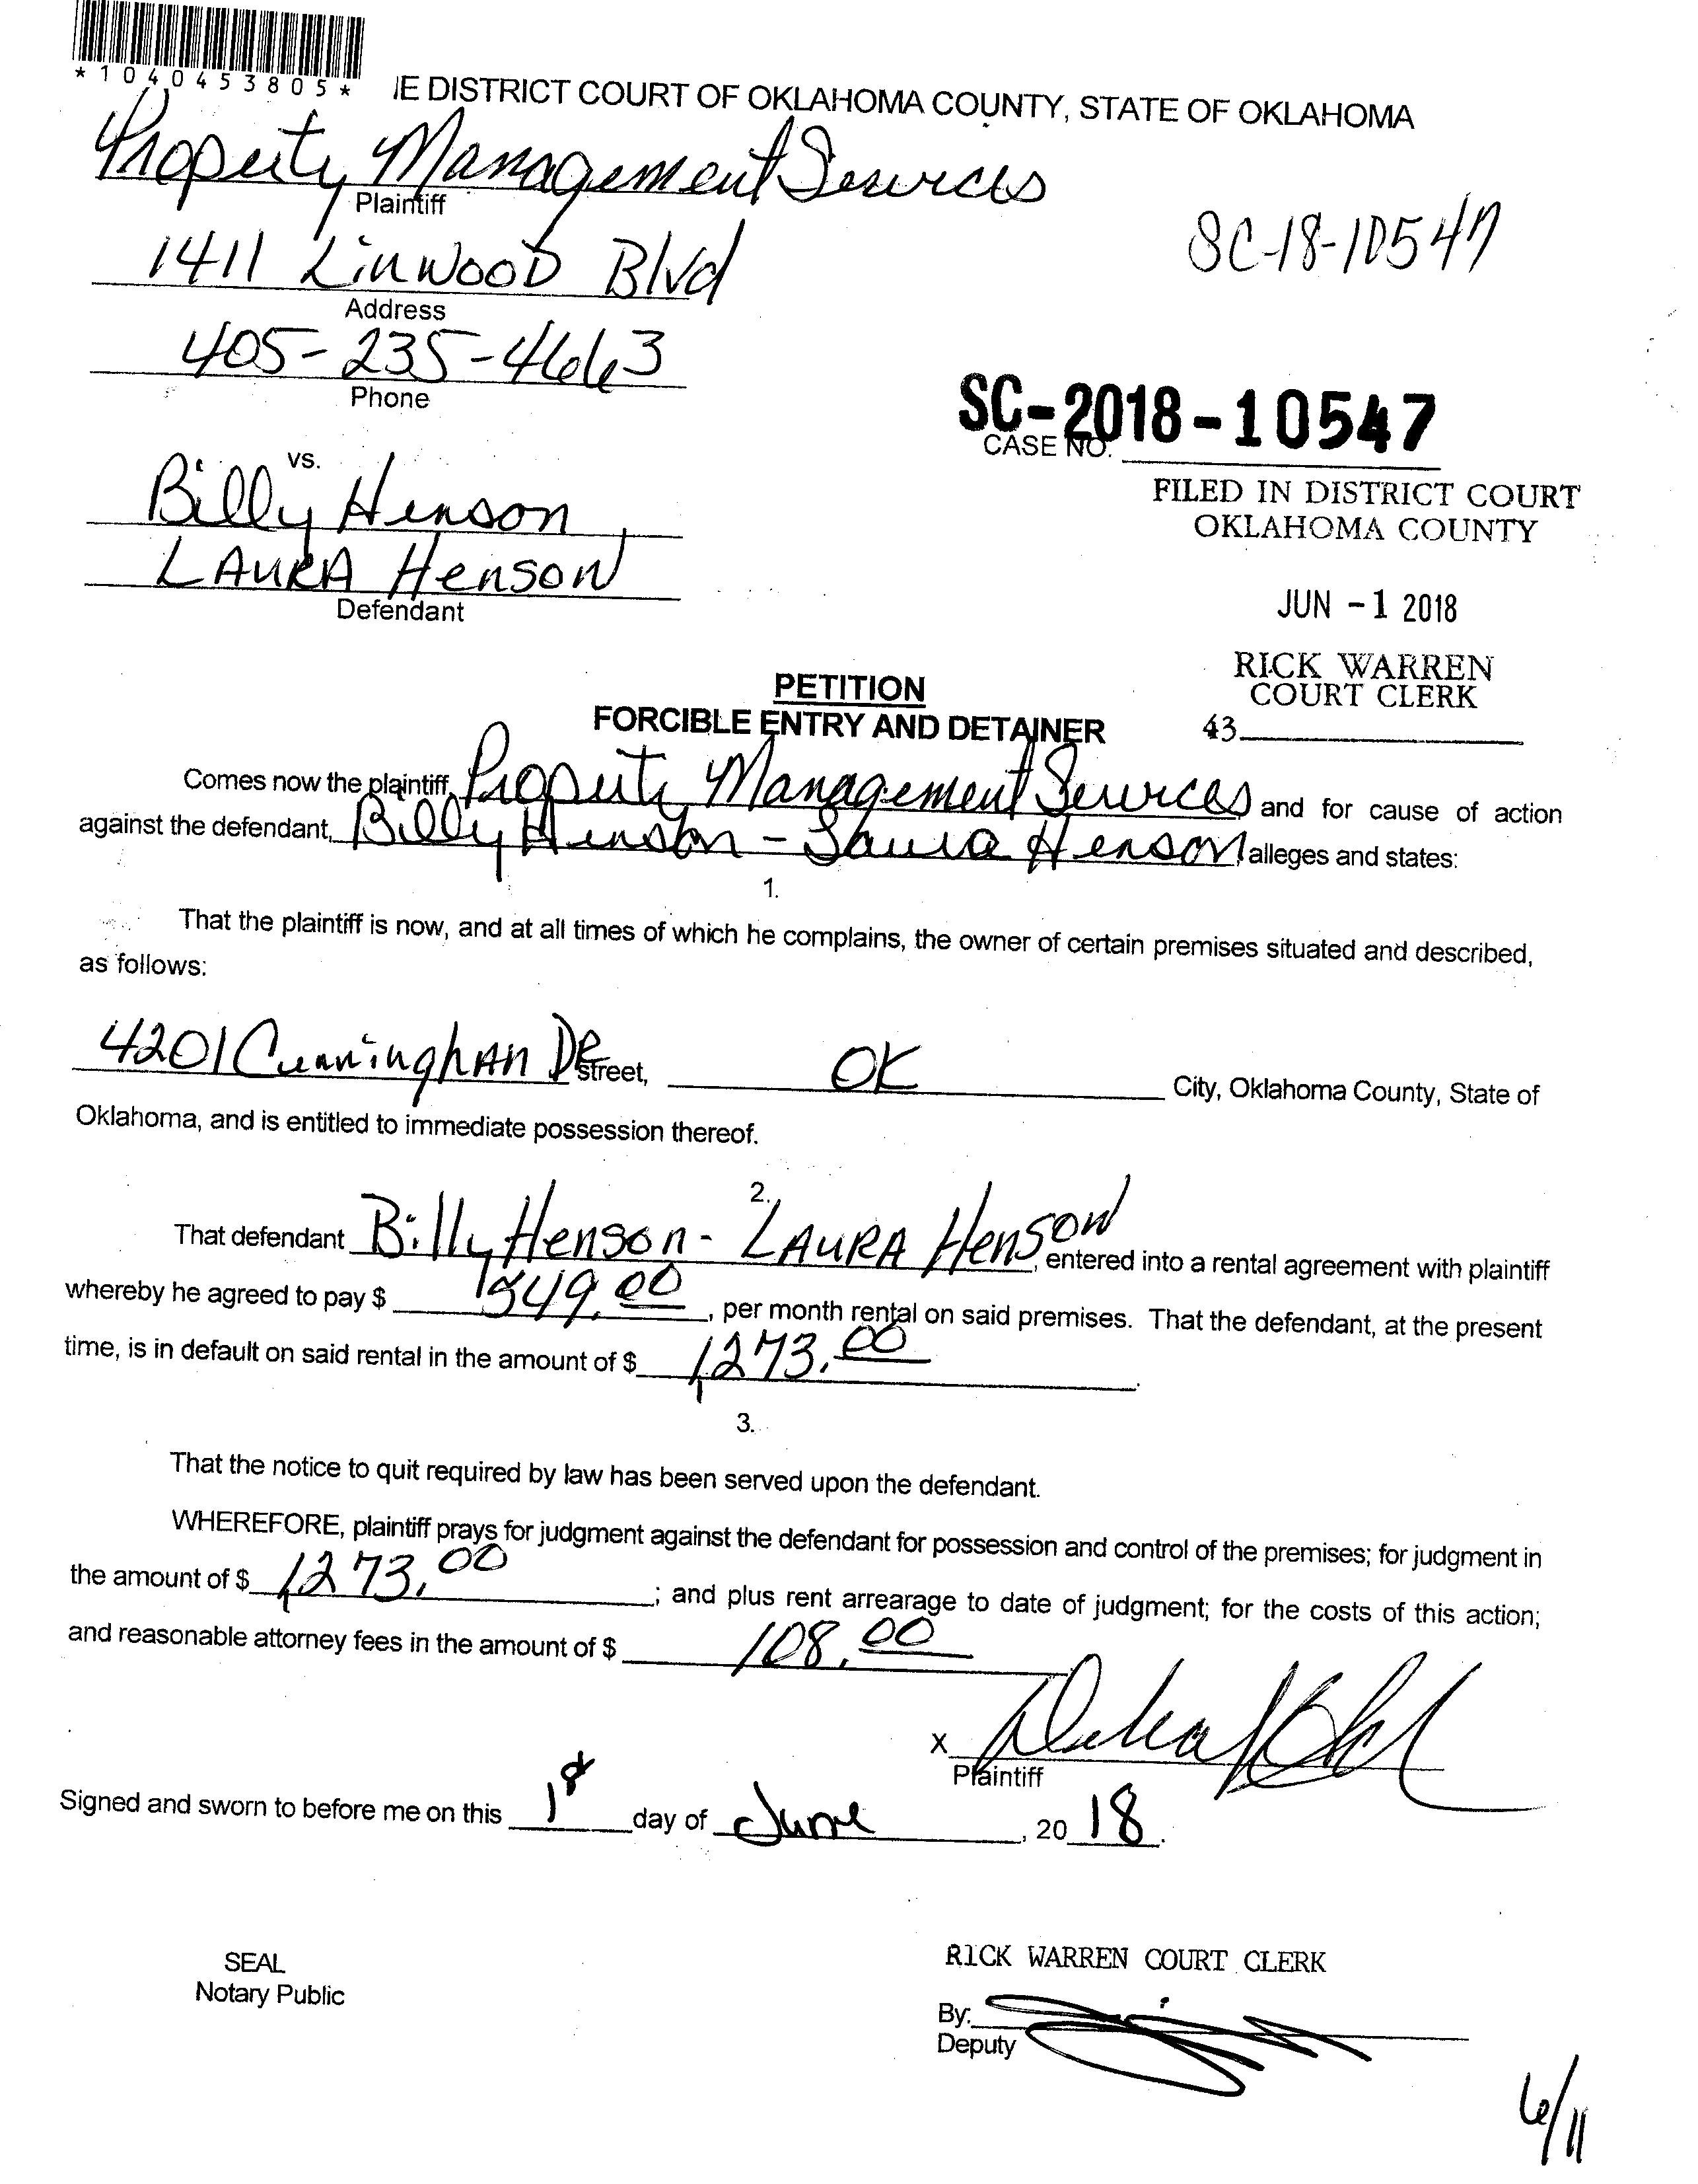 *1040453805*
IE DISTRICT COURT OF OKLAHOMA COUNTY, STATE OF OKLAHOMA
Property Management Services
Plaintiff
SC-18-10547
1411 Linwood Blvd
Address
405-235-4663
Phone
SC-2018-10547
CASE NO.
vs.
Billy Henson
FILED IN DISTRICT COURT
OKLAHOMA COUNTY
LAURA Henson
Defendant
JUN -1 2018
RICK WARREN
COURT CLERK
43
PETITION
FORCIBLE ENTRY AND DETAINER
Comes now the plaintiff, Property Management Services and for cause of action
against the defendant, Billy Henson - Laura Henson alleges and states:
1.
That the plaintiff is now, and at all times of which he complains, the owner of certain premises situated and described,
as follows:
4201 Cunninghan DR Street, OK City, Oklahoma County, State of
Oklahoma, and is entitled to immediate possession thereof.
2.
That defendant Billy Henson - LAURA Henson, entered into a rental agreement with plaintiff
whereby he agreed to pay $ , per month rental on said premises. That the defendant, at the present
time, is in default on said rental in the amount of $ 1,273.00.
3.
That the notice to quit required by law has been served upon the defendant.
WHEREFORE, plaintiff prays for judgment against the defendant for possession and control of the premises; for judgment in
the amount of $ 1,273.00; and plus rent arrearage to date of judgment; for the costs of this action;
and reasonable attorney fees in the amount of $ 108.00
X
Plaintiff
Signed and sworn to before me on this 1st day of June, 20 18.
SEAL
Notary Public
RICK WARREN COURT CLERK
By:
Deputy
6/11